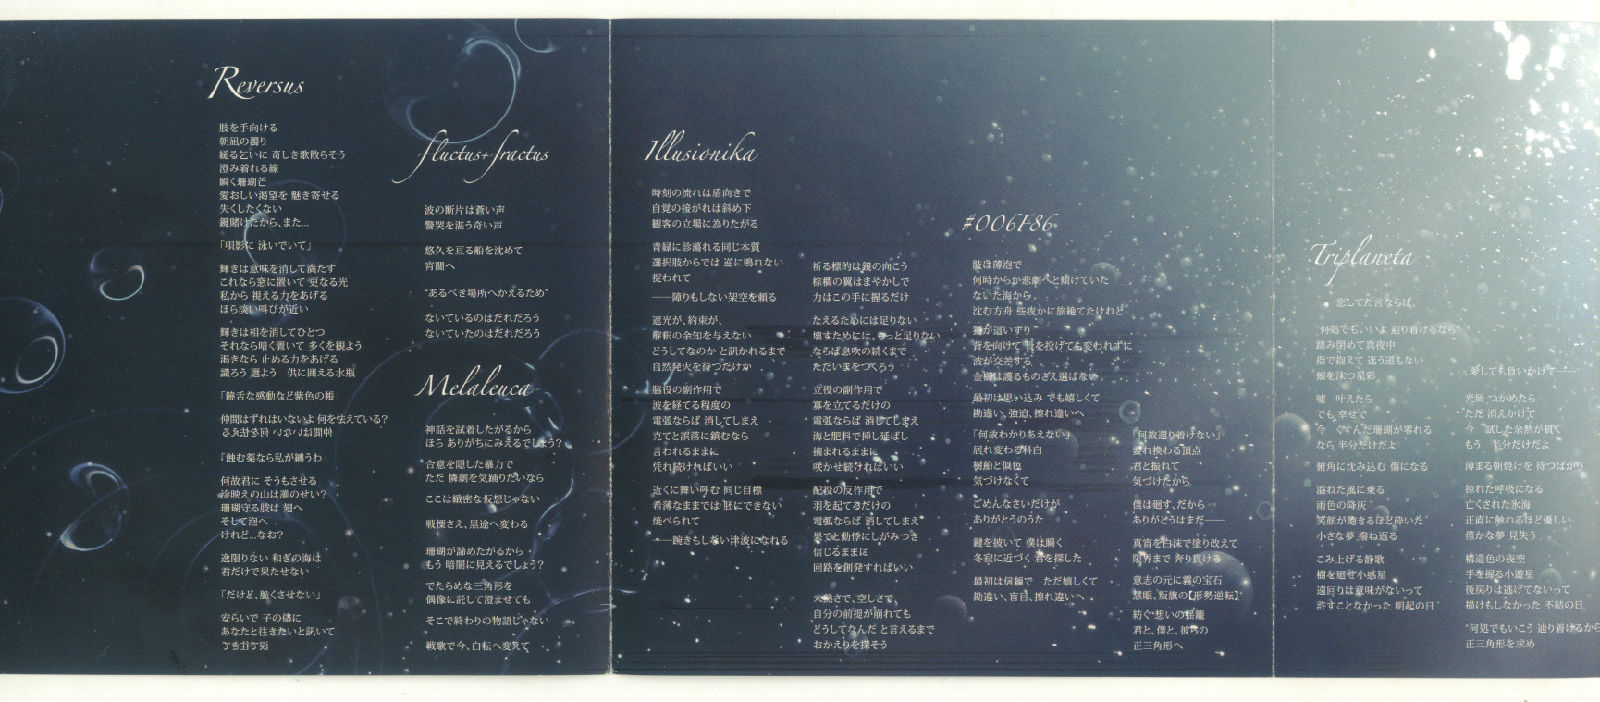 Reversus
肢を手向ける
朝凪の濁り
縋る乞いに 奇しき歌散らそう
澄み着れる線
瞬く珊瑚芒
愛おしい渇望を 魅き寄せる
失くしたくない
鍵賭けたから、また…
「唄影に 泳いでいて」
輝きは意味を消して満たす
これなら意に置いて 更なる光
私から 視える力をあげる
ほら淡い叫びが近い
輝きは相を消してひとつ
それなら暗く置いて 多くを観よう
渇きなら 止める力をあげる
識ろう 選よう 供に囲える水瓶
「饒舌な感動など紫色の帳」
仲間はずれはいないよ 何を怯えている?
「蝕む薬なら私が纏うわ」
何故君に そうもさせる
珊瑚守る肢は 翅へ
そして泡へ
けれど…なお?
途限りない 和ぎの海は
君だけで果たせない
「だけど、脆くさせない」
安らいで 子の儘に
あなたと往きたいと訊いて
fluctus+fractus
波の断片は蒼い声
警哭を湛う奇い声
悠久を亘る船を沈めて
宵闇へ
“あるべき場所へかえるため”
ないているのはだれだろう
ないていたのはだれだろう
Melaleuca
神話を試着したがるから
ほら ありがちにみえるでしょう?
合意を隠した暴力で
ただ 隣劇を気踊りたいなら
ここに緻密な仮想じゃない
戦慄さえ、呈途へ変わる
珊瑚が諦めたがるから
もう 暗闇に見えるでしょう?
でたらめな三角形を
偶像に託して澄ませても
そこで終わりの物語じゃない
戦歌で今、白転へ変えて
Illusionika
時刻の流れは垂向きで
自覚の接がれは斜め下
観客の立場に為りたがる
青緑に珍蕩れる同じ本質
選択肢からでは 逆に鳴れない
捉われて
――障りもしない架空を頼る
遮光が、約束が、
解釈の余知を与えない
どうしてなのか と訊かれるまで
自然発火を待つだけか
脇役の副作用で
波を経てる程度の
電弧ならば 消してしまえ
克てと誤落に鎮むなら
言われるままに
凭れ続ければいい
近くに舞い呼む 同じ目標
希薄なままでは 形にできない
焼べられて
――蹠きもしない津波になれる
祈る標的は鏡の向こう
棕櫚の翼はまやかしで
力はこの手に握るだけ
たえるためには足りない
壊すためには、もっと足りない
ならば息吹の続くまで
ただいまをつくろう
立役の副作用で
募を立てるだけの
電弧ならば 消してしまえ
海と肥料で挿し延ばし
摘まれるままに
咲かせ続ければいい
配役の反作用で
羽を起てるだけの
電弧ならば 消してしまえ
果てと動悸にしがみつき
信じるままに
回路を創発すればいい
大き​さで、空しさで、
自分の前提が崩れても
どうしてなんだ と言えるまで
おかえりを探そう
#006F86
肢は薄泡で
何時からか悲劇へと傾けていた
ないた海から
沈む方舟 些夜かに旅絶てたけれど
独が這いずり
背を向けて 骨を投げても変われずに
波が交差する
金槍は護るものさえ選ばない
最初は思い込み でも嬉しくて
勘違い、強迫、擦れ違いへ
「何故わかりあえない」
廻れ変わる科白
樹船と似也
気づけなくて
ごめんなさいだけが
ありがとうのうた
鍵を披いて 僕は瞬く
冬寂に近づく 君を探した
最初は信憑で ただ嬉しくて
勘違い、盲目、擦れ違いへ
「何故還り着けない」
要れ換わる頂点
君と振れて
気づけたから
僕は廻す、だから
ありがとうはまだ――
真宙を白沫で塗り改えて
限界まで 奔り貫ける
意志の元に雲の宝石
慧眼、叛旗の【形勢逆転】
紡ぐ想いの揺籠
君と、僕と、彼等の
正三角形へ
Triplaneta
恋してた言ならば、
“何処でもいいよ 辿り着けるなら”
踏み閉めて真夜中
指で抱えて 迷う道もない
頬を沫つ星彩
、愛しても負いかけて――
嘘 叶えたら
でも 幸せで
今 くすんだ珊瑚が零れる
なら 半分だけだよ
俯角に沈み込む 傷になる
溢ねた風に乗る
雨色の降灰
“笑顔が飽きるほど砕いた”
小さな夢 廃ね返る
こみ上げる静歌
樹を廻せ小惑星
遠回りは意味がないって
許すことなかった 明起の日
光屑 つかめたら
ただ 消えかけて
今 試した余熱が貫く
もう 半分だけだよ
薄まる朝焼けを 待つばかり
掠れた呼吸になる
亡くされた氷海
正直に触れるほど優しい
僅かな夢 見失う
構造色の夜空
手を握る小遊星
後戻りは逃げてないって
描けもしなかった 不結の日
“何処でもいこう 辿り着けるから
正三角形を求め